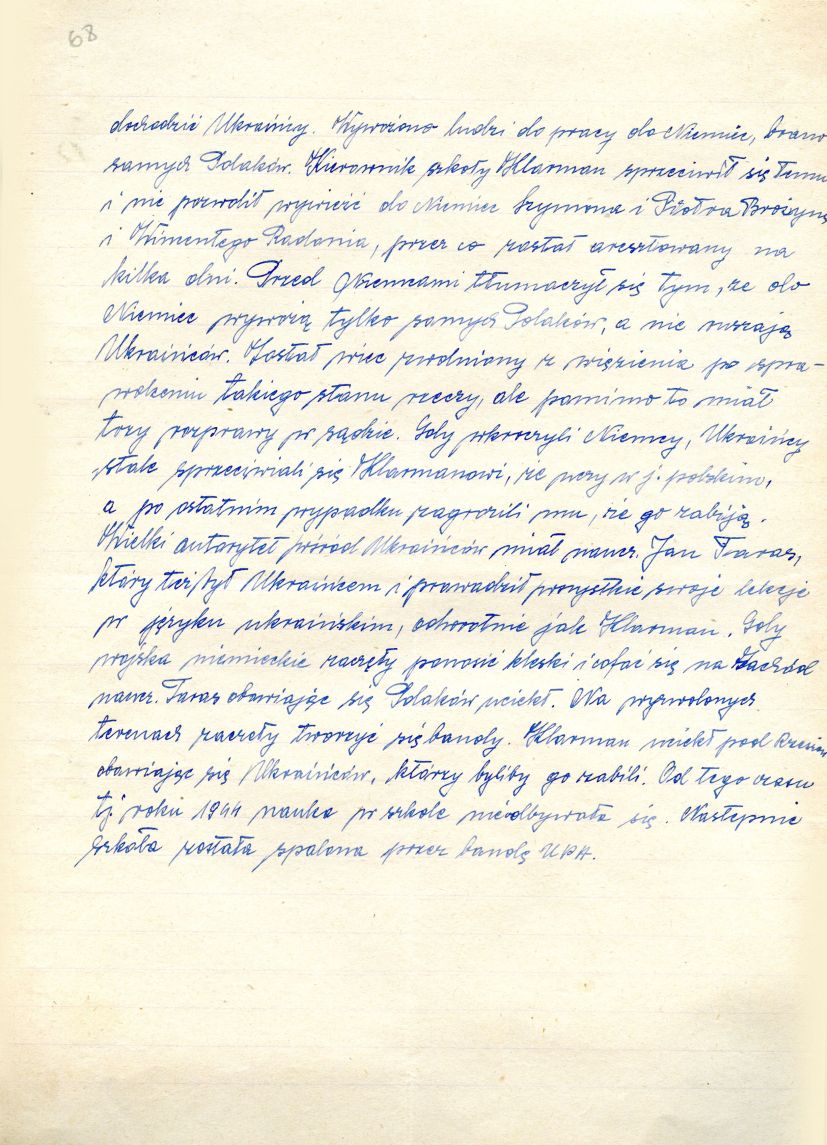 68
dochodzić Ukraińcy. Wywożono ludzi do pracy do Niemiec, brano
samych Polaków. Kierownik szkoły Klarman sprzeciwił się temu
i nie pozwolił wywieźć do Niemiec Szymona i Piotra Brożyna
i Klimentego Radania, przez co został aresztowany na
kilka dni. Przed Niemcami tłumaczył się tym, że do
Niemiec wywożą tylko samych Polaków, a nie ruszają
Ukraińców. Został więc zwolniony z więzienia po spra-
wdzeniu takiego stanu rzeczy, ale pomimo to miał
trzy rozprawy w sądzie. Gdy wkroczyli Niemcy, Ukraińcy
stale sprzeciwiali się Klarmanowi, że uczy w j. polskim,
a po ostatnim wypadku zagrozili mu, że go zabiją.
Wielki autorytet wśród Ukraińców miał naucz. Jan Taras,
który też był Ukraińcem i prowadził wszystkie swoje lekcje
w języku ukraińskim, odwrotnie jak Klarman. Gdy
wojska niemieckie zaczęły ponosić klęski i cofać się na Zachód
naucz. Taras obawiając się Polaków uciekł. Na wyzwolonych
terenach zaczęły tworzyć się bandy. Klarman uciekł pod
obawiając się Ukraińców, którzy byliby go zabili. Od tego czasu
tj. roku 1944 nauka w szkole nie odbywała się. Następnie
szkoła została spalona przez bandę UPA.